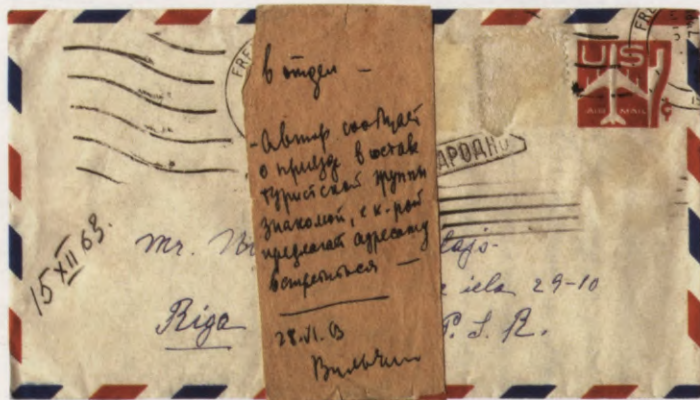 в отдел —
- Автор сообщает
о приезде в составе
туристской группы
знакомой, с к-рой
предлагает адресату
встретиться —
28.VI.63
US
AIR MAIL
7¢
FRE
FRE
АРОДНО
15 XII 63.
Mr.
iela 29-10
Riga
P. S. R.